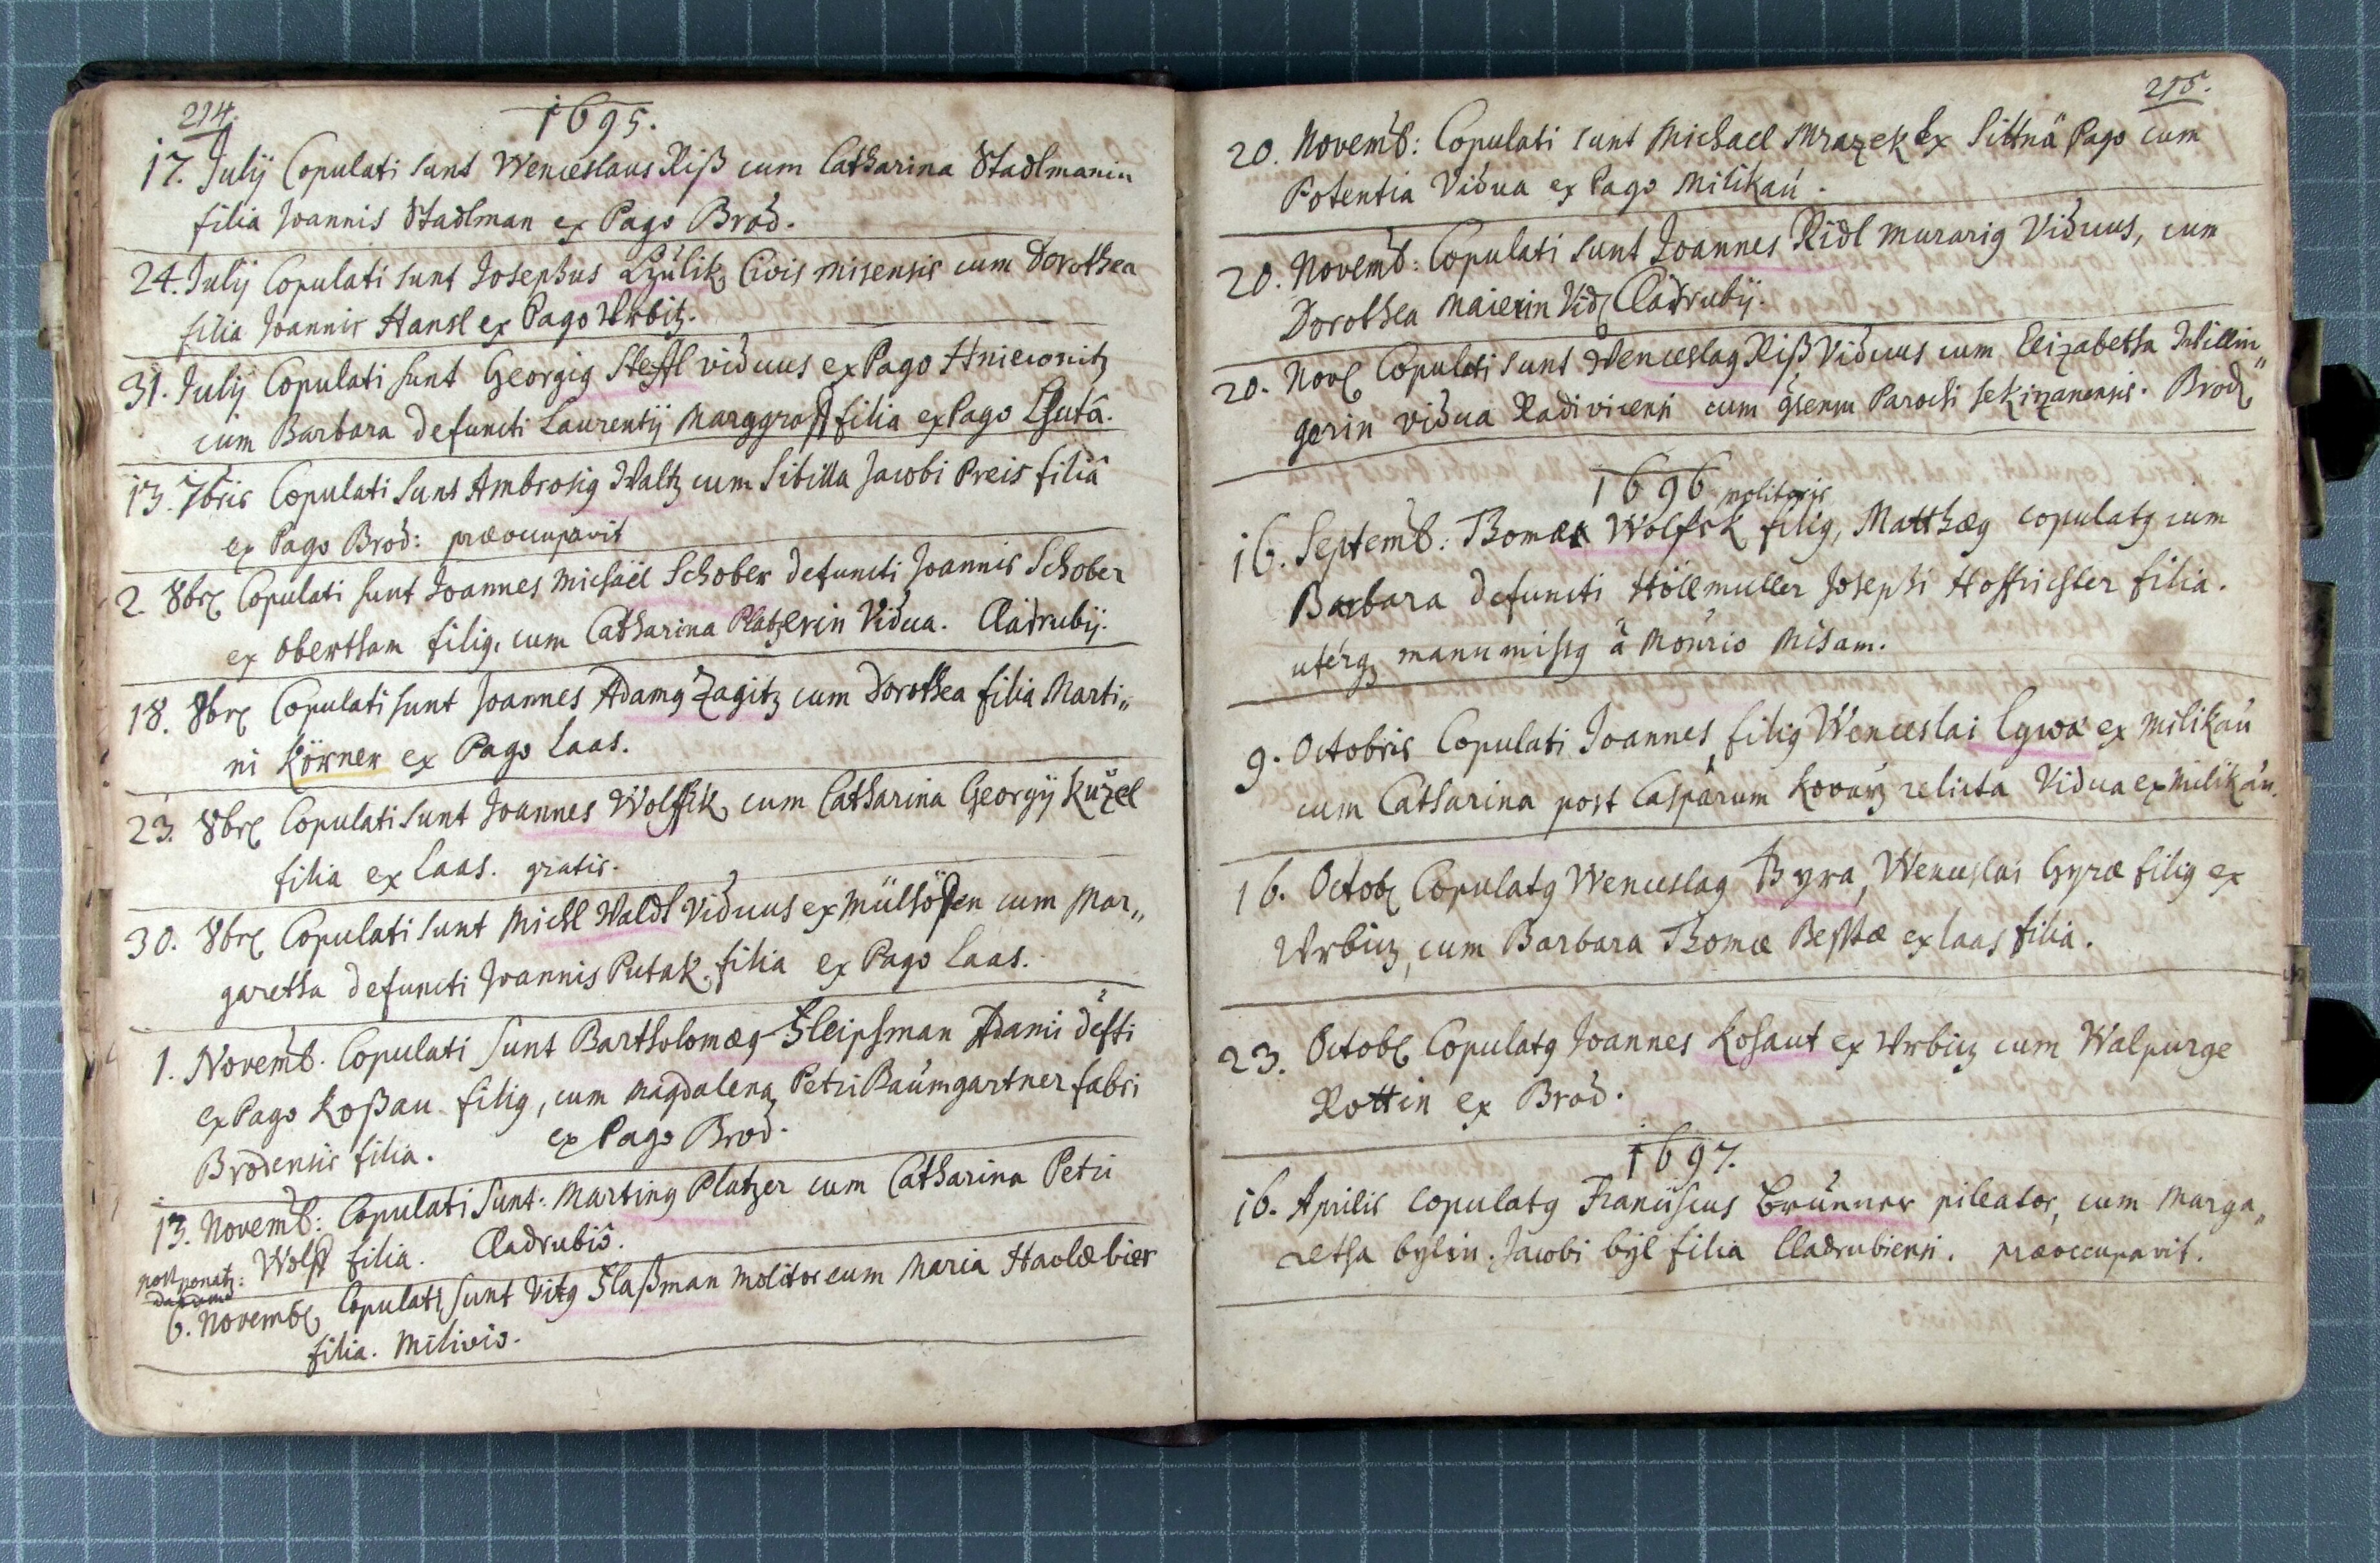 214.
1695.
17. Julij Copulati sunt Wenceslaus Riß cum Catharina Stadlmanin
filia Joannis Stadlman ex Pago Brod.
24. Julij Copulati sunt Josephus Czulik Civis misensis cum Dorothea
filia Joannis Hansl ex Pago Wrbitz.
31. Julij Copulati sunt Georgig Steffl viduus ex Pago Hniewnitz
cum Barbara defuncti Laurentij Marggraff filia ex Pago Lhutâ.
13. 7bris Copulati sunt Ambrosig Waltz cum Sibilla Jacobi Preis filiâ
ex Pago Brod: præoccupavit
2 8br Copulati sunt Joannes Michaël Schober defuncti Joannis Schober
ex Obertham filig, cum Catharina Platzerin Vidua. Cladrubij.
18. 8br Copulati sunt Joannes Adamg Zagitz cum Dorothea filia Marti„
ni Körner ex Pago Laas.
23. 8br Copulati sunt Joannes Wolffik cum Catharina Georgij Kužel
filia ex Laas. gratis.
30. 8br Copulati sunt Michl Waldl Viduus ex Mülhöfen cum Mar„
garetha defuncti Joannis Putak filia ex Pago Laas.
1. Novemb. Copulati sunt Bartholomæg Sleipsman Adami defti
ex Pago Koßau filig, cum Magdalena Petri Baumgartner fabri
Brodensis filia. ex Pago Brod.
13. Novemb: Copulati sunt: Marting Platzer cum Catharina Petri
Wolff filia. Cladrubiô.
postponatr:
6. Novemb Copulati sunt Vitg Slaßman molitor cum Maria Havlæ bier
filia. Milivio.
215.
20. Novemb: Copulati sunt Michael Mrazek ex Sittnâ Pago cum
Potentia Vidua ex Pago Milikau.
20. Novemb: Copulati sunt Joannes Ridl murarig Viduus, cum
Dorothea Maierin Vid Cladrubij.
20. Nov Copulati sunt Wenceslag Riß Viduus cum Elizabetha Willin„
gerin vidua Radivicensi cum Parochi sekirzanensis. Brod
1696
molitoris
16. Septemb: Thomæ Wolfsk filig, Matthæg copulatg cum
Barbara defuncti Höllmuller Josephi Hoffrichter filia.
uterq manumissg â Monrio Misam.
9. Octobris Copulati Joannes, filig Wenceslai Cgwa ex Milikau
cum Catharina post Casparum Kovarz relicta Vidua ex Milikau.
16. Octob Copulatg Wenceslag Byra, Wenceslai Gyræ filig ex
Wrbicz, cum Barbara Thomæ Besstæ ex laas filia.
23. Octob Copulatg Joannes Kohaut ex Wrbicz cum Walpurge
Rottin ex Brod.
1697.
16. Aprilis copulatg Franciscus Brunner pileator, cum Marga„
retha bylin. Jacobi byl filia Cladrubiensi. præoccupavit.